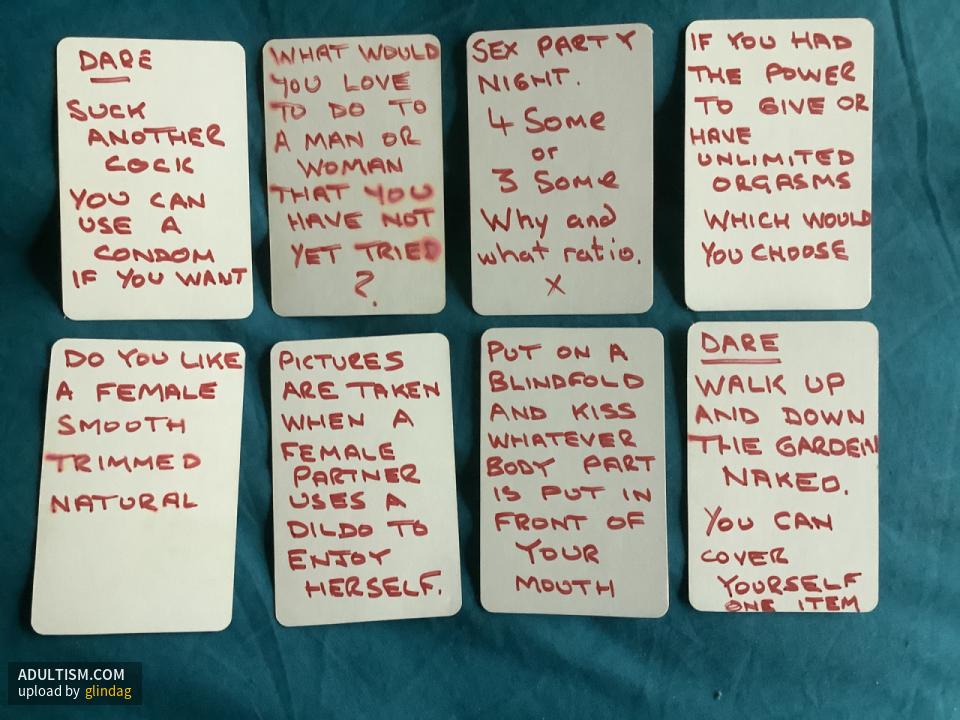 DARE
SUCK
ANOTHER
COCK
YOU CAN
USE A
CONDOM
IF YOU WANT
WHAT WOULD
YOU LOVE
TO DO TO
A MAN OR
WOMAN
THAT YOU
HAVE NOT
YET TRIED
?
SEX PARTY
NIGHT.
4 Some
or
3 Some
Why and
what ratio.
X
IF YOU HAD
THE POWER
TO GIVE OR
HAVE
UNLIMITED
ORGASMS
WHICH WOULD
YOU CHOOSE
DO YOU LIKE
A FEMALE
SMOOTH
TRIMMED
NATURAL
PICTURES
ARE TAKEN
WHEN A
FEMALE
PARTNER
USES A
DILDO TO
ENJOY
HERSELF.
PUT ON A
BLINDFOLD
AND KISS
WHATEVER
BODY PART
IS PUT IN
FRONT OF
YOUR
MOUTH
DARE
WALK UP
AND DOWN
THE GARDEN
NAKED.
YOU CAN
COVER
YOURSELF
ONE ITEM
ADULTISM.COM
upload by glindag